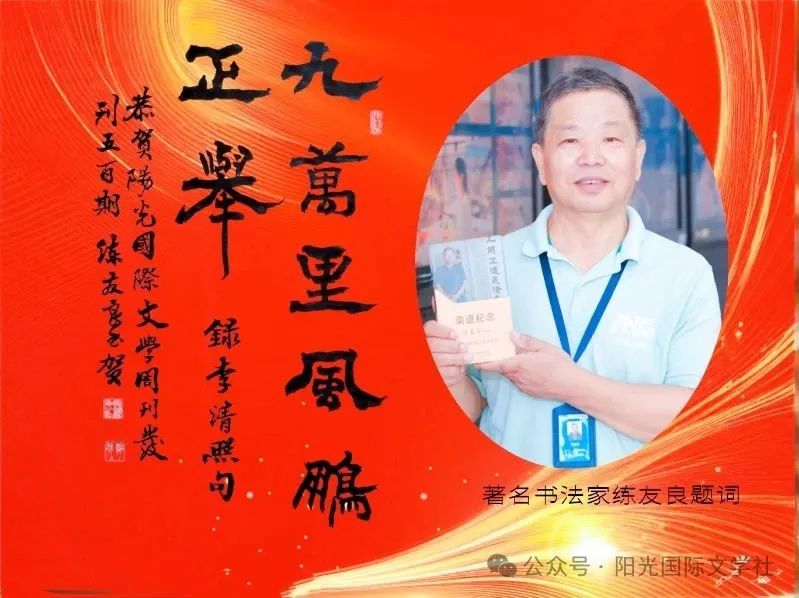 九萬里風鵬
正舉
録李清照句
恭賀陽光國際文學周刊發
刊五百期 练友良书贺
荣退纪念
著名书法家练友良题词
公众号·阳光国际文学社